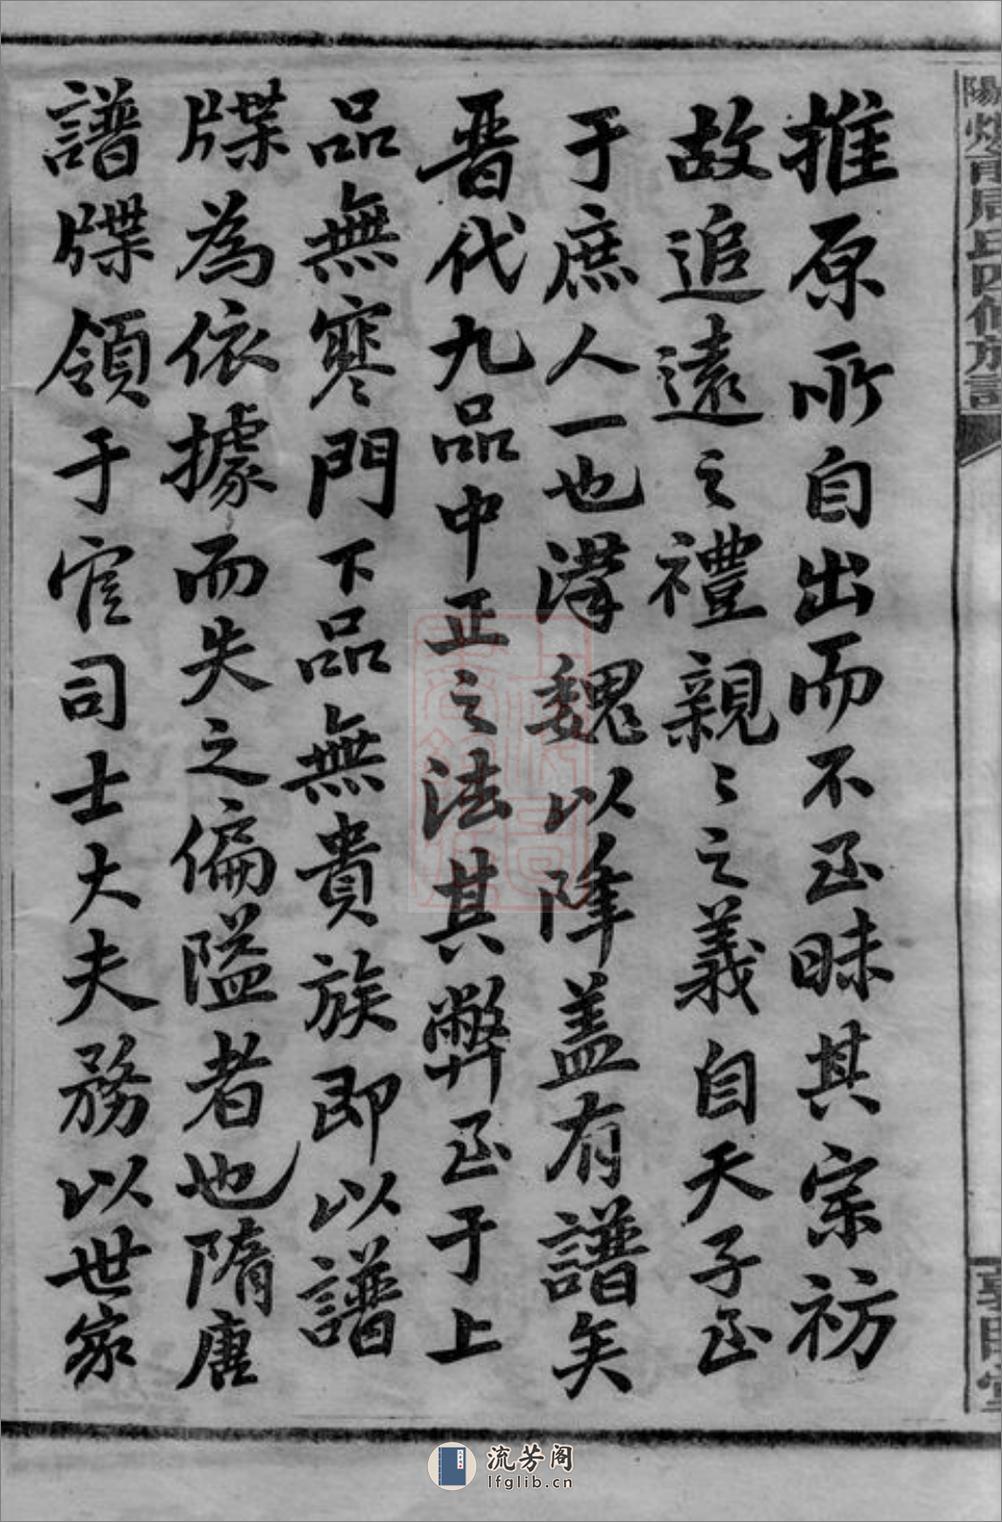 推原所自出而不至昧其宗祊
故追遠之禮親〻之義自天子至
于庶人一也漢魏以降蓋有譜矣
晋代九品中正之法其弊至于上
品無寒門下品無貴族即以譜
牒為依據而失之偏隘者也隋唐
譜牒領于官司士大夫務以世家
周氏四修族譜
流芳阁
lfglib.cn